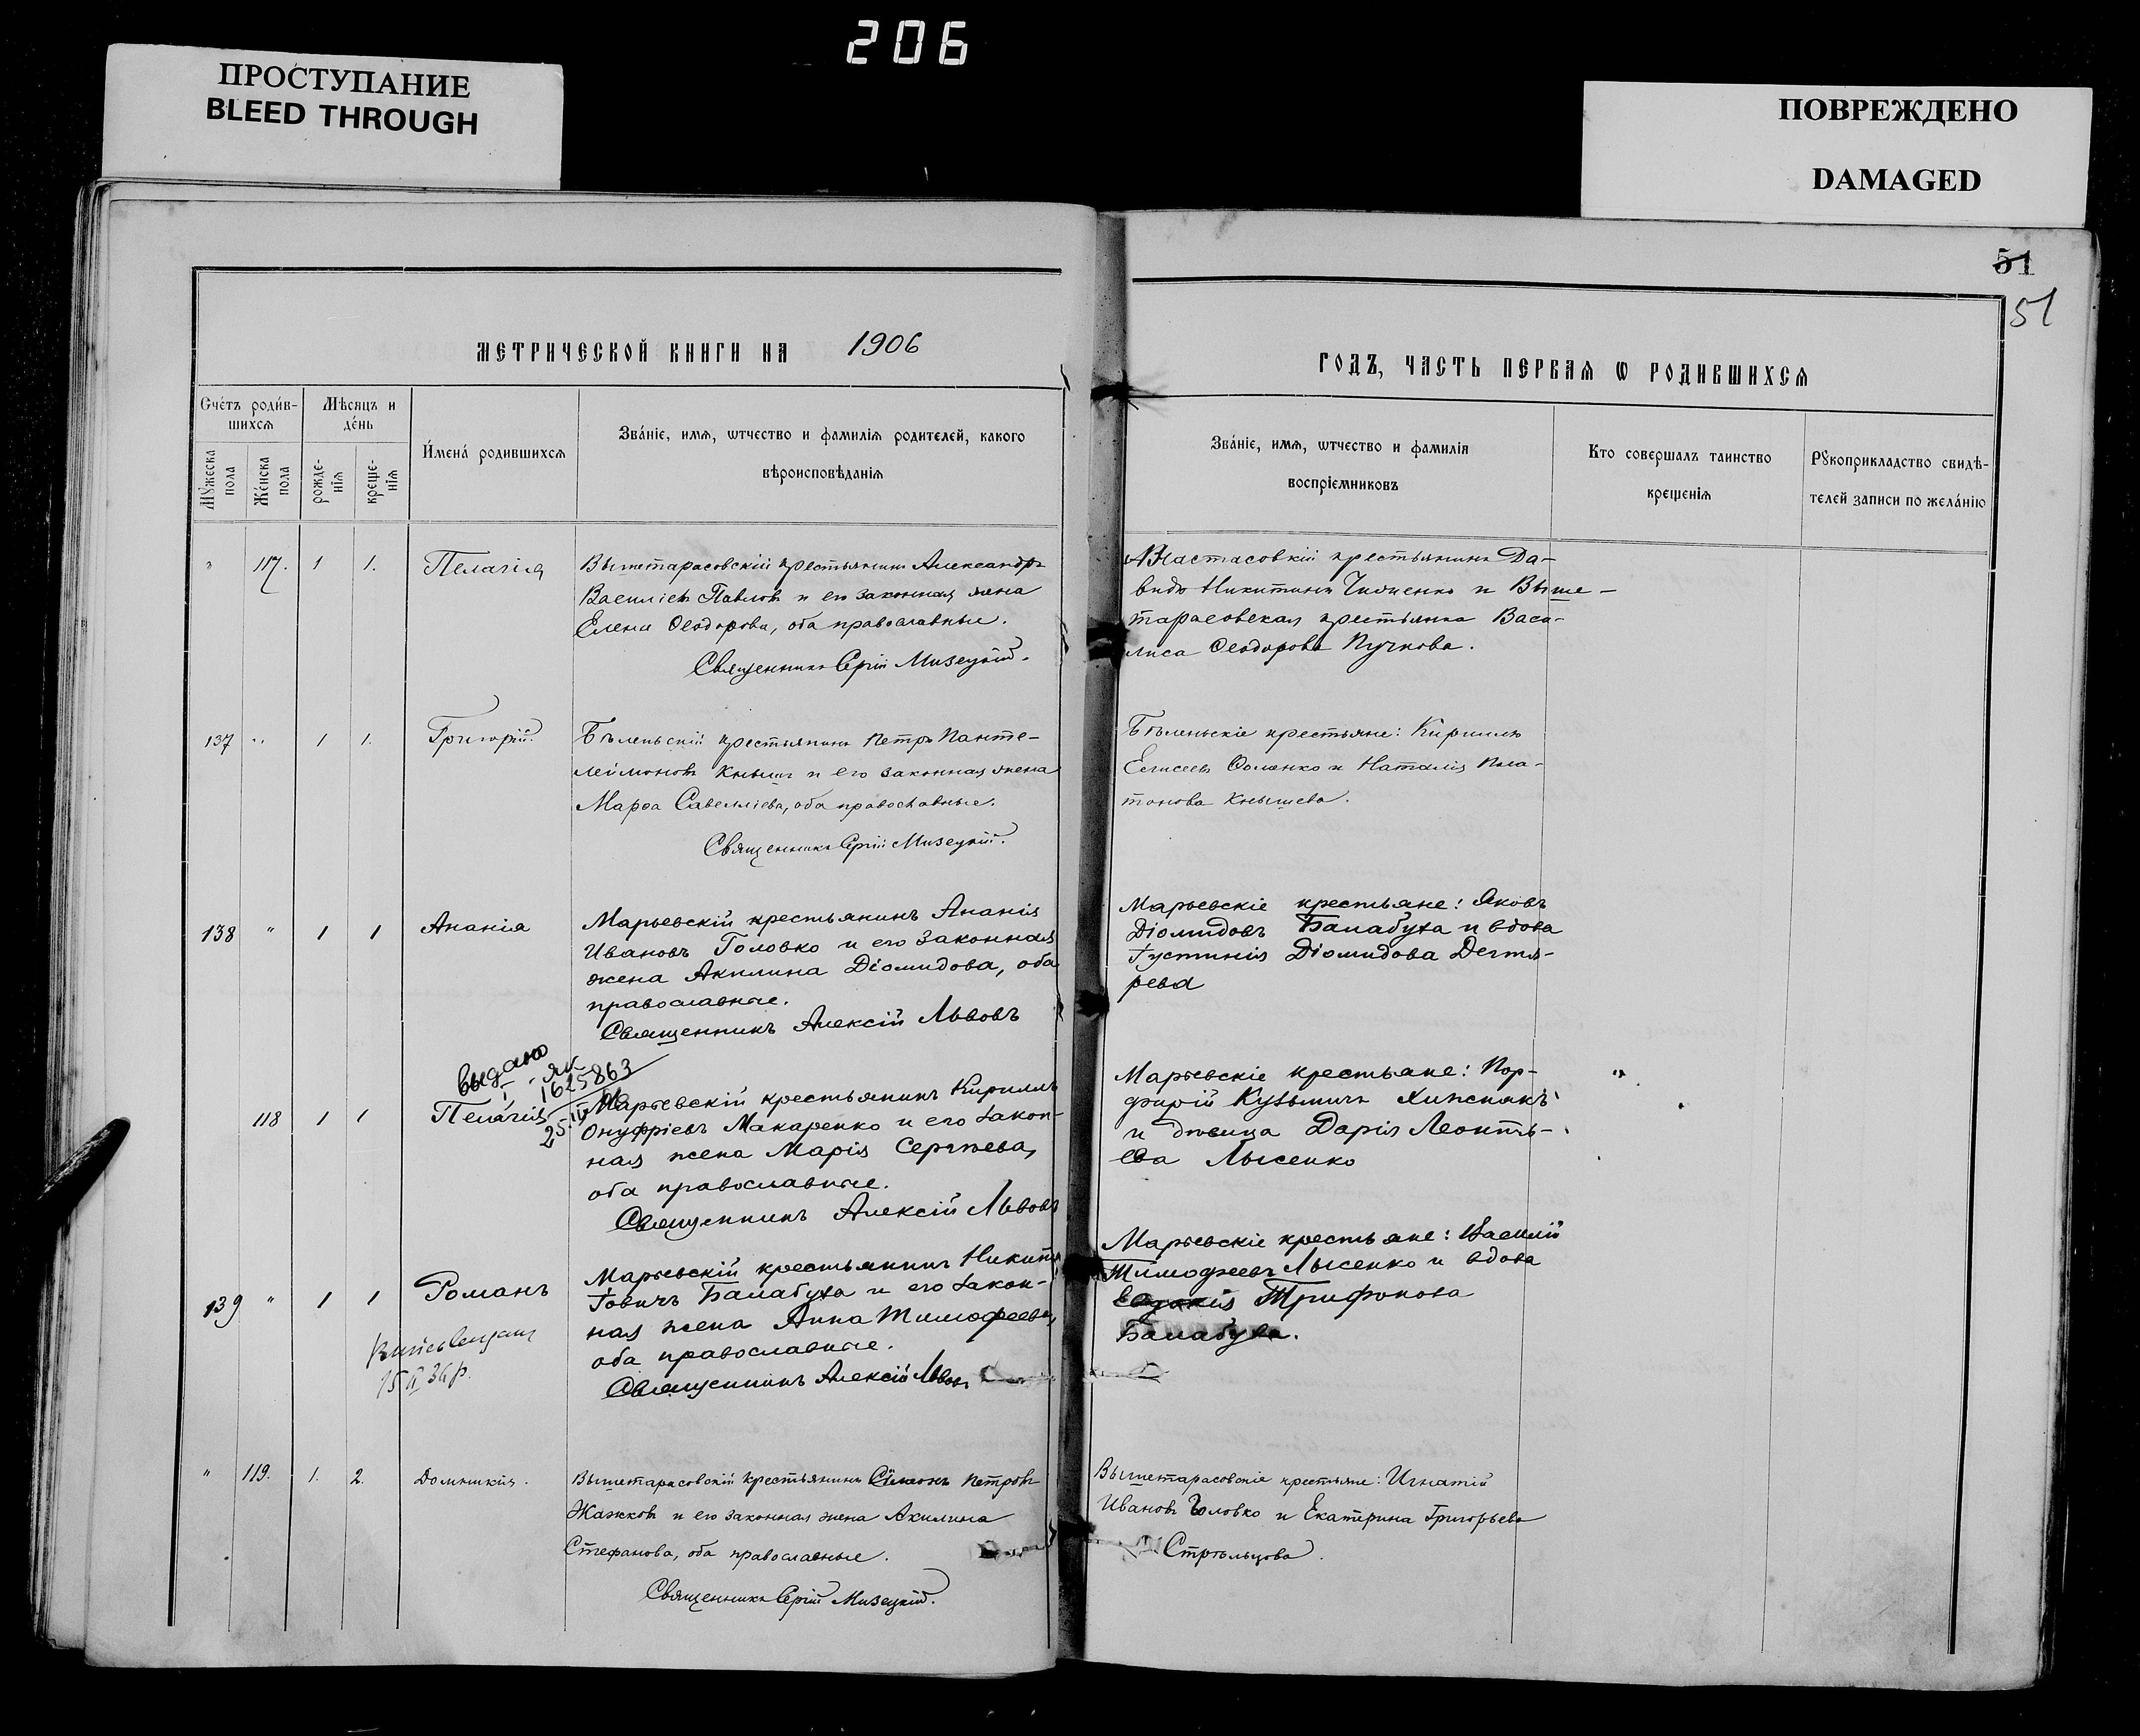 206
ПРОСТУПАНИЕ
BLEED THROUGH
ПОВРЕЖДЕНО
DAMAGED
51
51
МЕТРИЧЕСКОЙ КНИГИ НА 1906
ГОДЪ, ЧАСТЬ ПЕРВАЯ Ѡ РОДИВШИХСЯ
Счéтъ роди́в-
шихся
Мѣсяцъ и
дéнь
Мꙋжеска
пола
Жéнска
пола
рожде-
нія
креще-
нія
И́мена́ родившихся
Зва́ніе, имя, ѡтчество и фамилія родителей, какого
вѣроисповѣданія
Зва́ніе, имя, ѡтчество и фамилія
воспріемниковъ
Кто совершалъ таинство
крещенія
Рꙋкоприкладство свидѣ-
телей записи по жела́нію
" 117. 1 1. Пелагія
Вышетарасовскій крестьянинъ Александръ
Василіевъ Павловъ и его законная жена
Елена Ѳеодорова, оба православные.
Священникъ Сергій Мизецкій.
Анастасовкій крестьянинъ Да-
видъ Никитинъ и Выше-
тарасовская крестьянка Васи-
лиса Ѳеодорова Пучкова.
137 " 1 1. Григорій.
Бѣленьскій крестьянинъ Петръ Панте-
леімоновъ Кнышъ и его законная жена
Марѳа Савелліева, оба православные.
Священникъ Сергій Мизецкій.
Бѣленьскіе крестьяне: Кириллъ
Елисеевъ и Наталія Пла-
тонова Кнышева.
138 " 1 1 Ананія
Марьевскій крестьянинъ Ананія
Ивановъ Головко и его законная
жена Акилина Діомидова, оба
православные.
Священникъ Алексій Львовъ
Марьевскіе крестьяне: Яковъ
Діомидовъ Балабуха и вдова
Іустинія Діомидова Дегтя-
рева
выдано
І-ЯК
1625863
25.IV
118 1 1 Пелагія
Марьевскій крестьянинъ Кириллъ
Онуфріевъ Макаренко и его закон-
ная жена Марія Сергѣева,
оба православные.
Священникъ Алексій Львовъ
Марьевскіе крестьяне: Пор-
фирій Кузьмичъ Хижнякъ
и дѣвица Дарія Леонть-
ева Лысенко
139 " 1 1 Романъ
15 ІІ 36 р.
Марьевскій крестьянинъ Никита
Іовичъ Балабуха и его закон-
ная жена Анна Тимофеева,
оба православные.
Священникъ Алексій Львовъ
Марьевскіе крестьяне: Василій
Тимофеевъ Лысенко и вдова
Евдокія Трифонова
Балабуха.
" 119. 1. 2. Домникія.
Вышетарасовскій крестьянинъ Сімеонъ Петровъ
Жажковъ и его законная жена Акилина
Стефанова, оба православные.
Священникъ Сергій Мизецкій.
Вышетарасовскіе крестьяне: Игнатій
Ивановъ Головко и Екатерина Григорьева
Стрѣльцова.